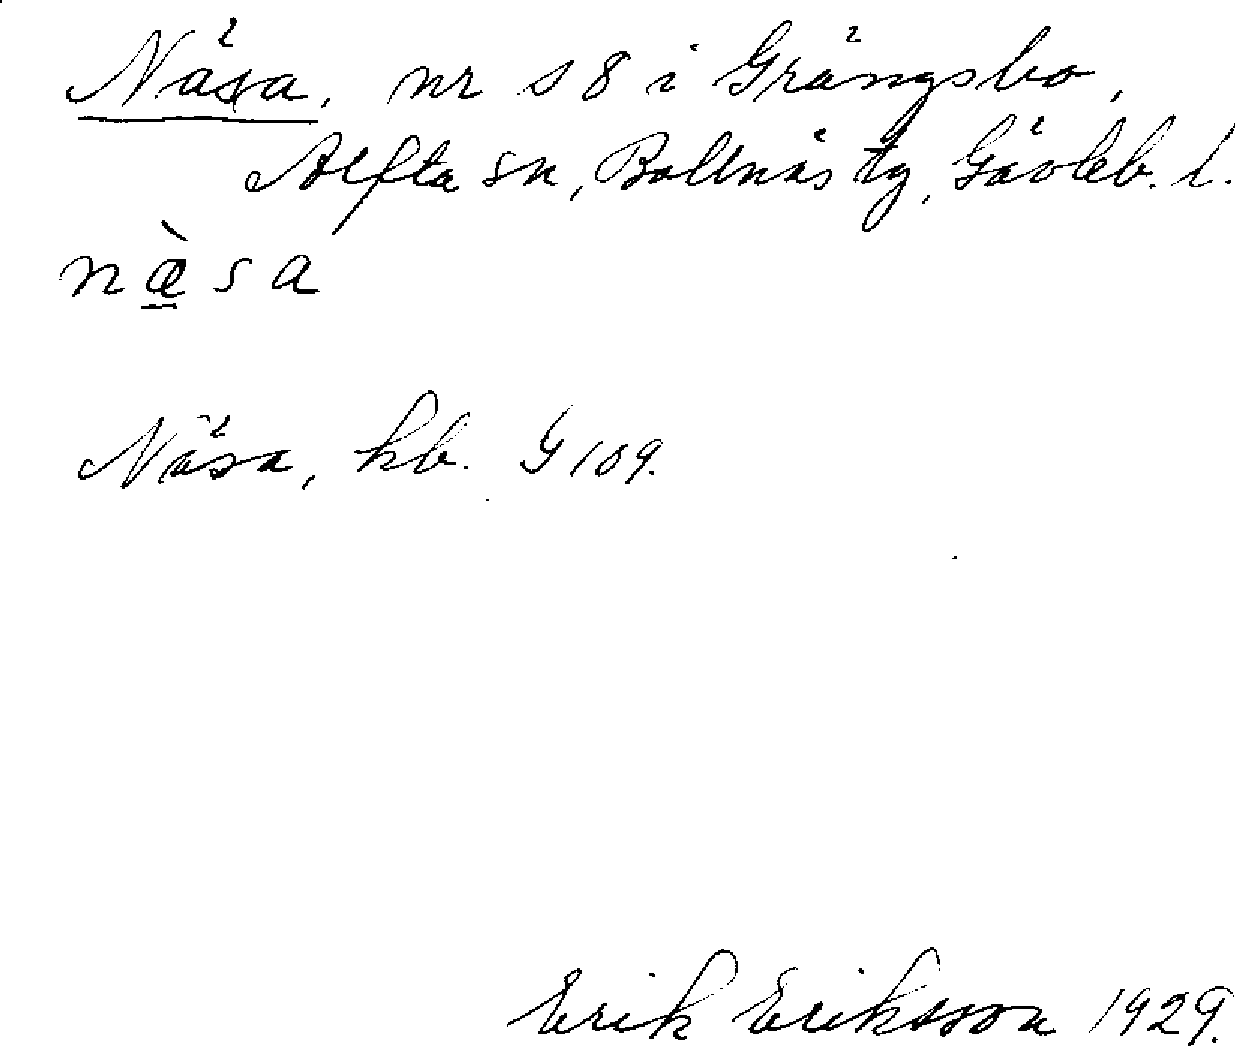 Näsa, nr 18 i Grängsbo,
Alfta sn, Bollnäs tg, Gävleb. l.
næ̀sa
Näsa, hb. G 109.
Erik Eriksson 1929.